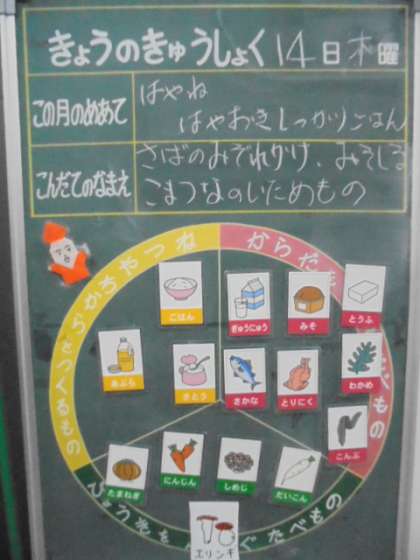 きょうのきゅうしょく 14日 木曜
この月のめあて
はやね
はやおきしっかりごはん
こんだてのなまえ
さばのみぞれかけ、みそしる
こまつなのいためもの
ちからやねつ
をつくるもの
からだを
もの
ごはん
ぎゅうにゅう
みそ
とうふ
あぶら
さとう
さかな
とりにく
わかめ
こんぶ
たまねぎ
にんじん
しめじ
だいこん
エリンギ
びょう気を
ぐたべもの